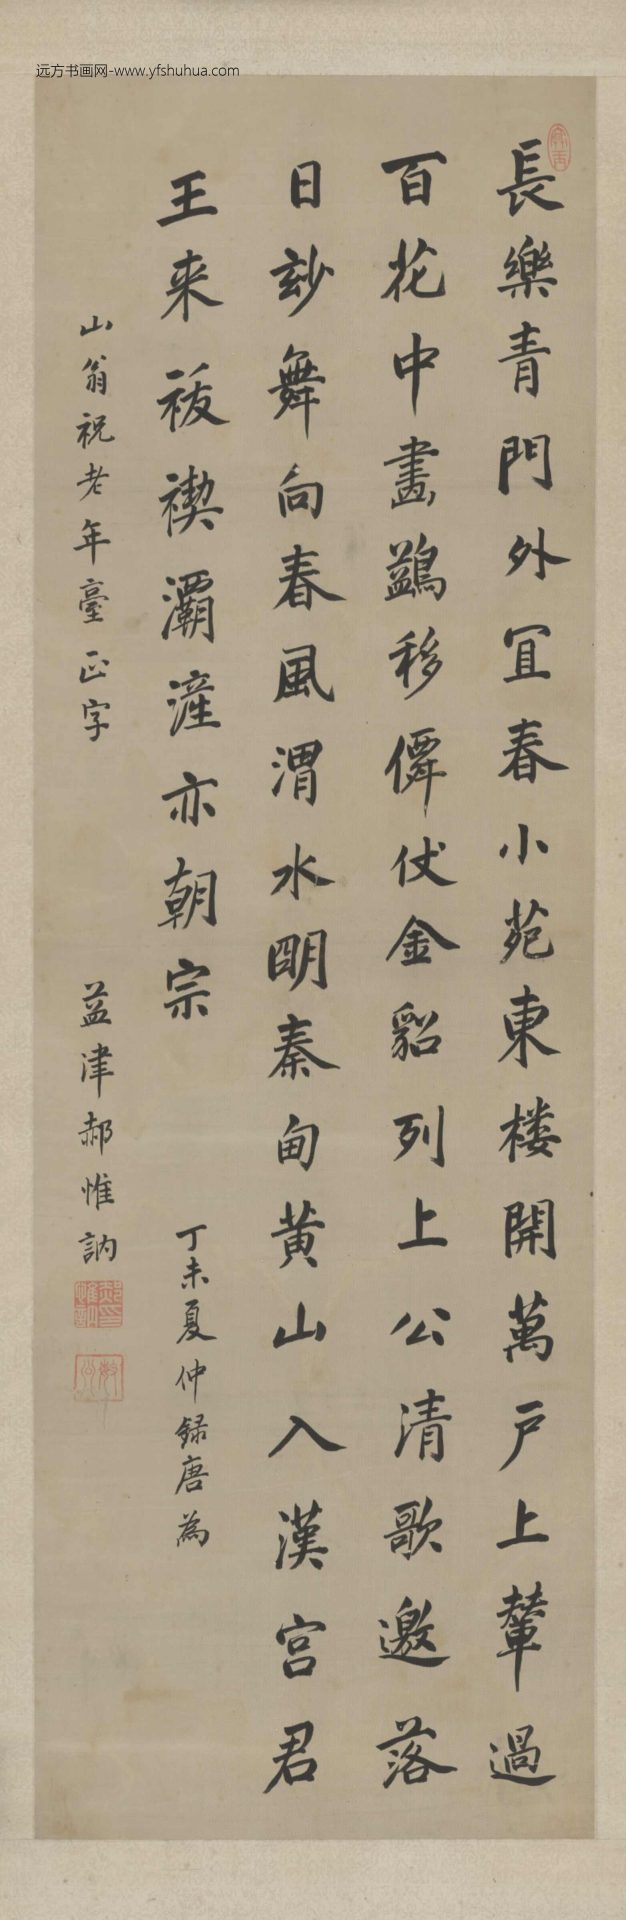 远方书画网-www.yfshuhua.com
長樂青門外宜春小苑東樓開萬户上輦過
百花中畫鷁移僊仗金貂列上公清歌邀落
日玅舞向春風渭水明秦甸黄山入漢宫君
王来祓禊灞滻亦朝宗
丁未夏仲録唐為
山翁祝老年臺正字
益津郝惟訥